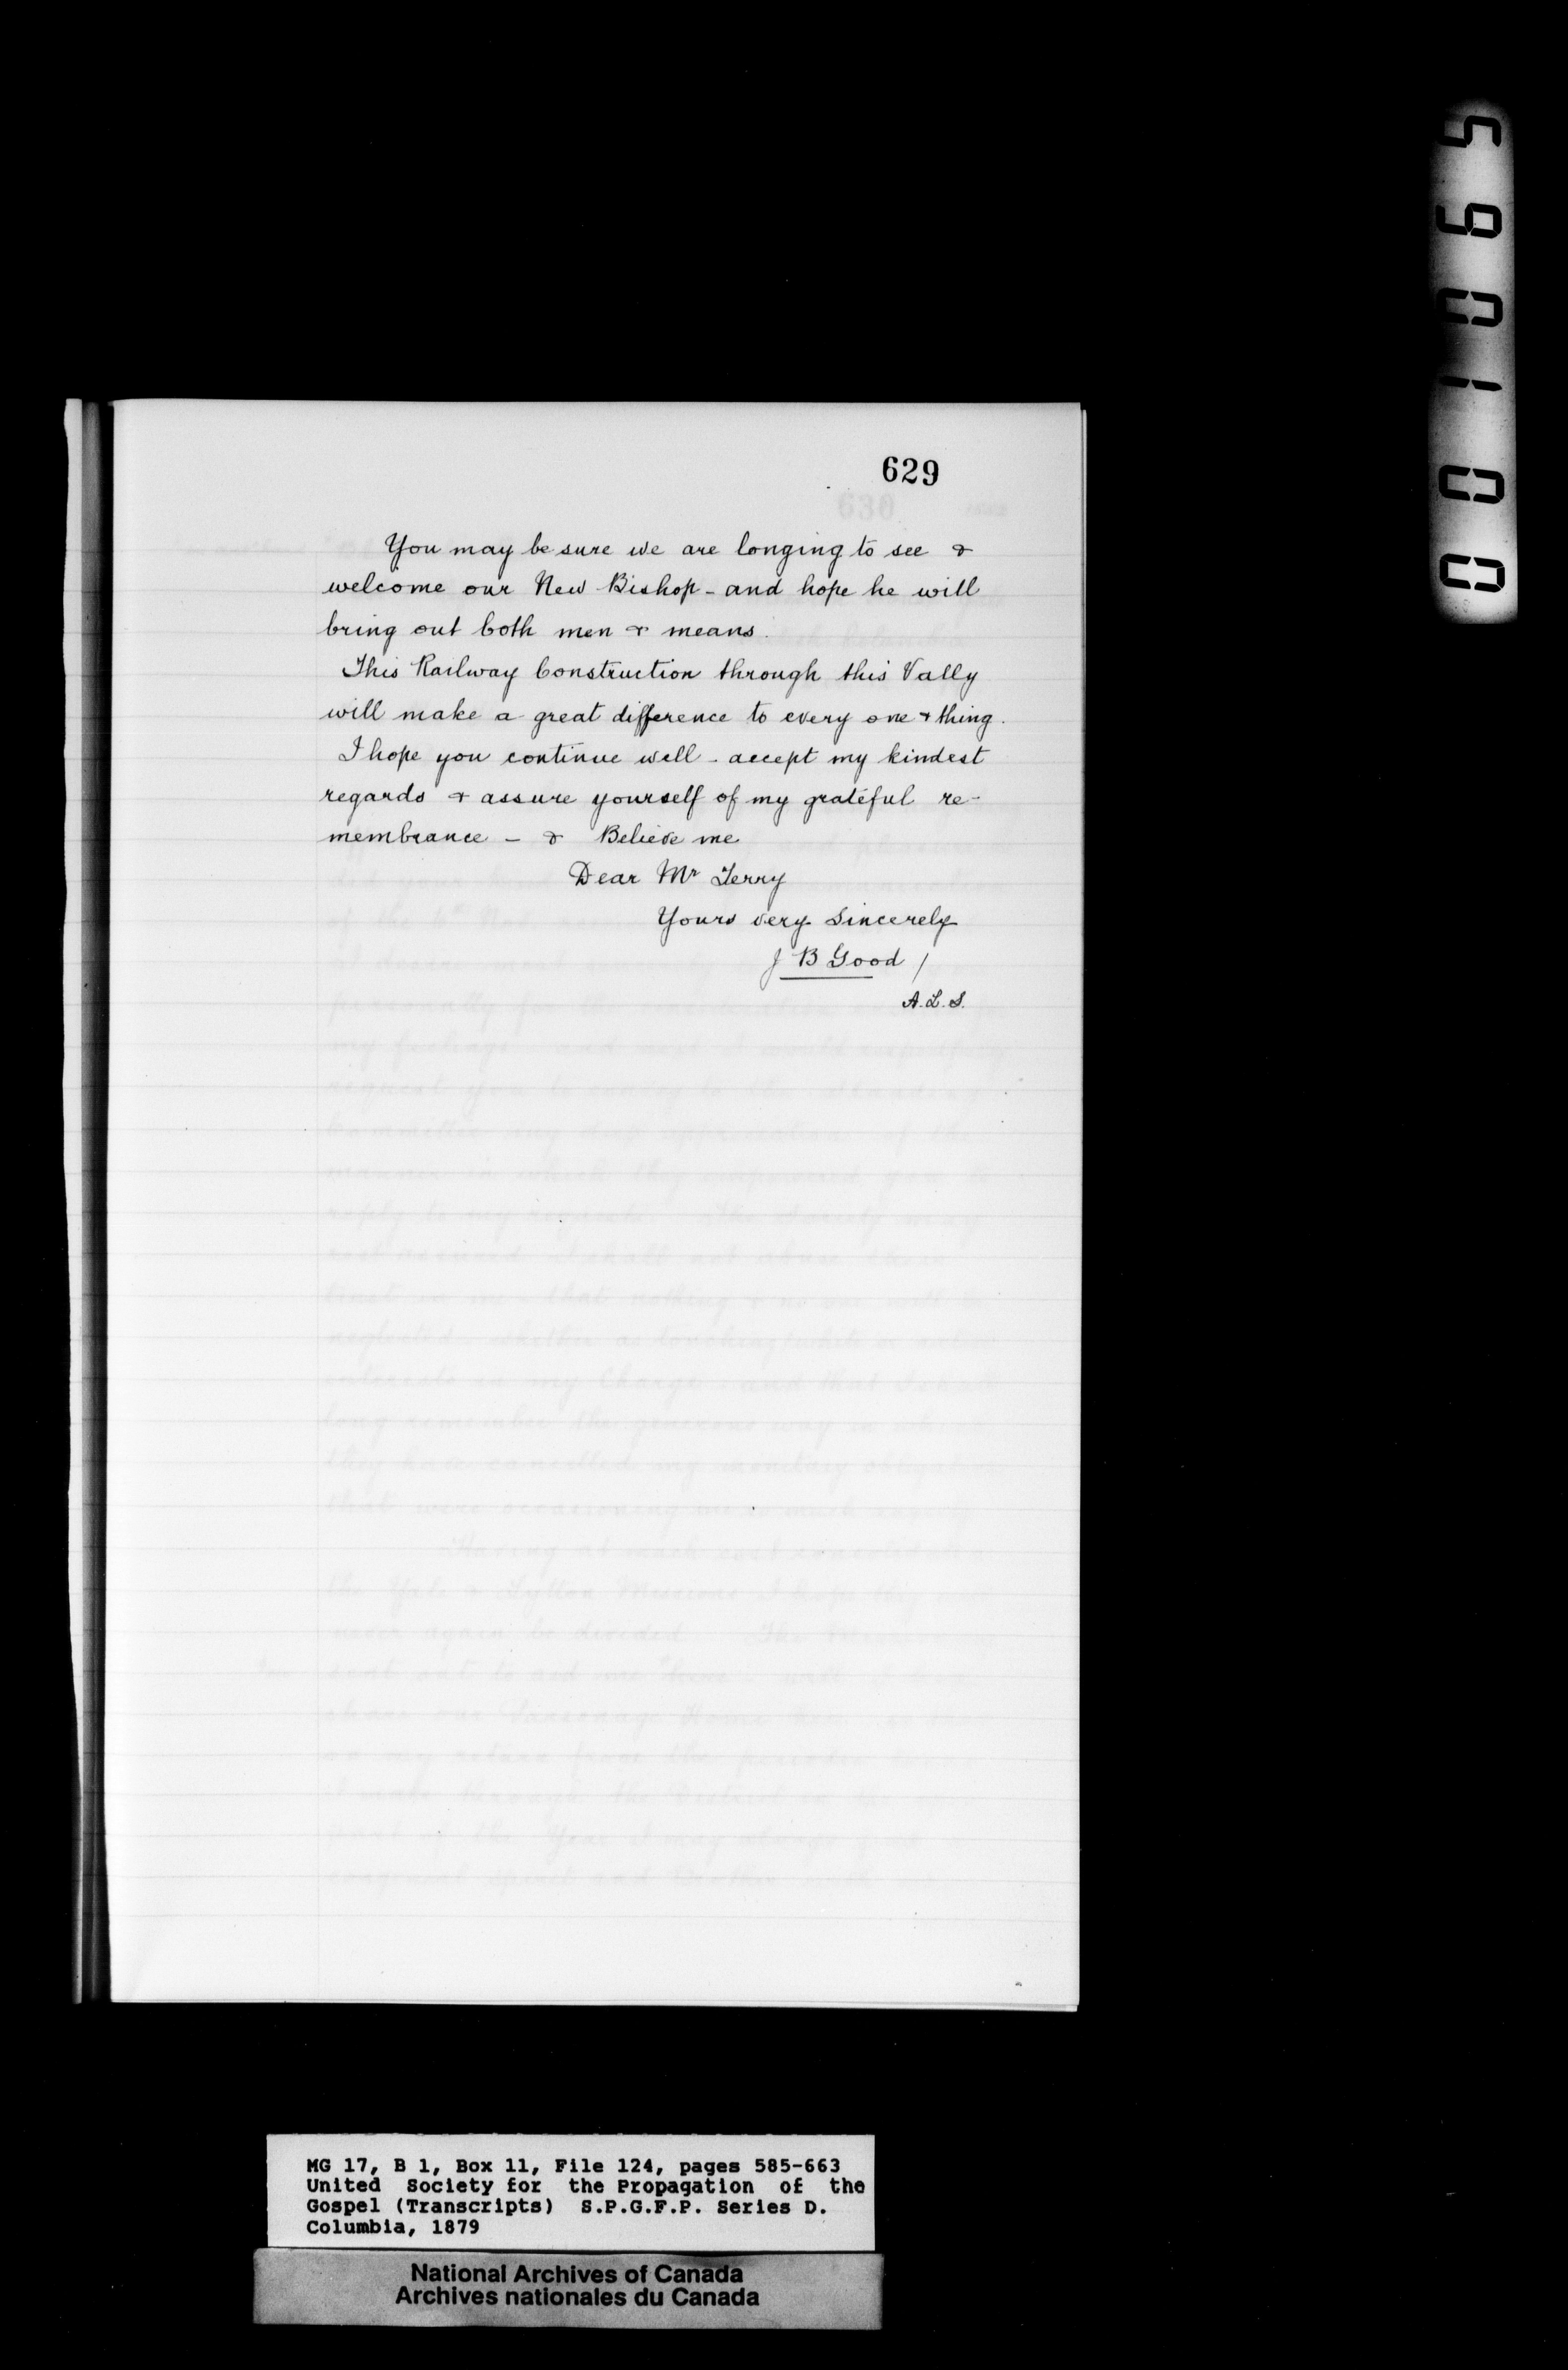 629
You may be sure we are longing to see &
welcome our New Bishop - and hope he will
bring out both men & means.
This Railway Construction through this Vally
will make a great difference to every one & thing.
I hope you continue well - accept my kindest
regards & assure yourself of my grateful re-
membrance - & Believe me
Dear Mr Terry
Yours very Sincerely
J B Good /
A. L. S.
001065
MG 17, B 1, Box 11, File 124, pages 585-663
United Society for the Propagation of the
Gospel (Transcripts) S.P.G.F.P. Series D.
Columbia, 1879
National Archives of Canada
Archives nationales du Canada